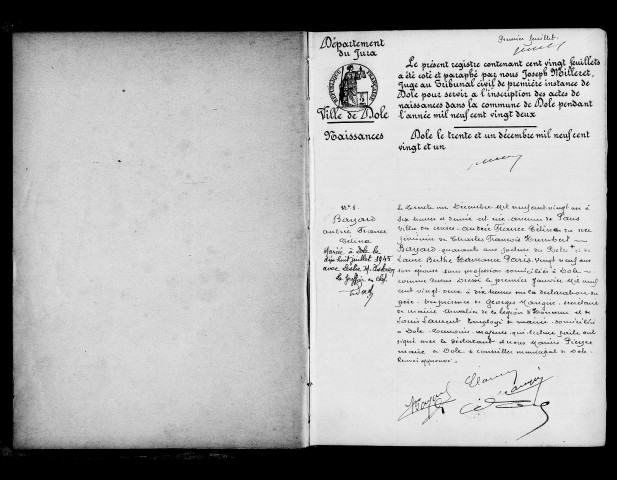 Premier feuillet
Département
du Jura
RÉPUBLIQUE FRANÇAISE
Ville de Dole
Naissances
Le présent registre contenant cent vingt feuillets
a été coté et paraphé par nous Joseph Milleret,
Juge au Tribunal civil de première instance de
Dole pour servir à l'inscription des actes de
naissances dans la commune de Dole pendant
l'année mil neuf cent vingt deux
Dole le trente et un décembre mil neuf cent
vingt et un
N° 1.
Bazard
Andrée France
Célina
Mariée à Dole le
dix huit juillet 1945
avec
Le Greffier en chef
Le trente un Décembre Mil neuf cent vingt un à
dix heures et demie est née avenue de Paris
Andrée France Célina du sexe
féminin de Charles François Humbert
Bazard quarante ans
Laure Berthe Hermance Paris vingt neuf ans
son épouse sans profession domiciliés à Dole
Dressé le premier Janvier Mil neuf
cent vingt deux à dix heures sur la déclaration du
père. En présence de Georges Mangin, secrétaire
de mairie chevalier de la légion d'Honneur et de
Louis Laurent Employé de mairie domiciliés
à Dole témoins majeurs qui lecture faite ont
signé avec le déclarant et nous Marius Pieyre
maire de Dole & conseiller municipal de Dole.